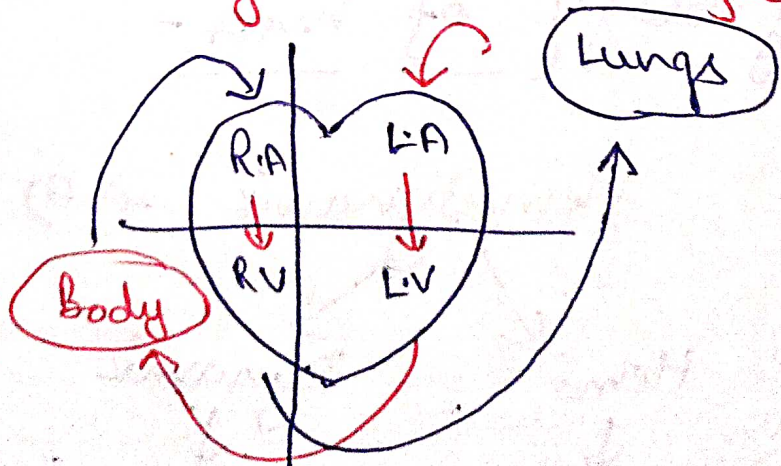 Lungs
R.A L.A
RV L.V
Body